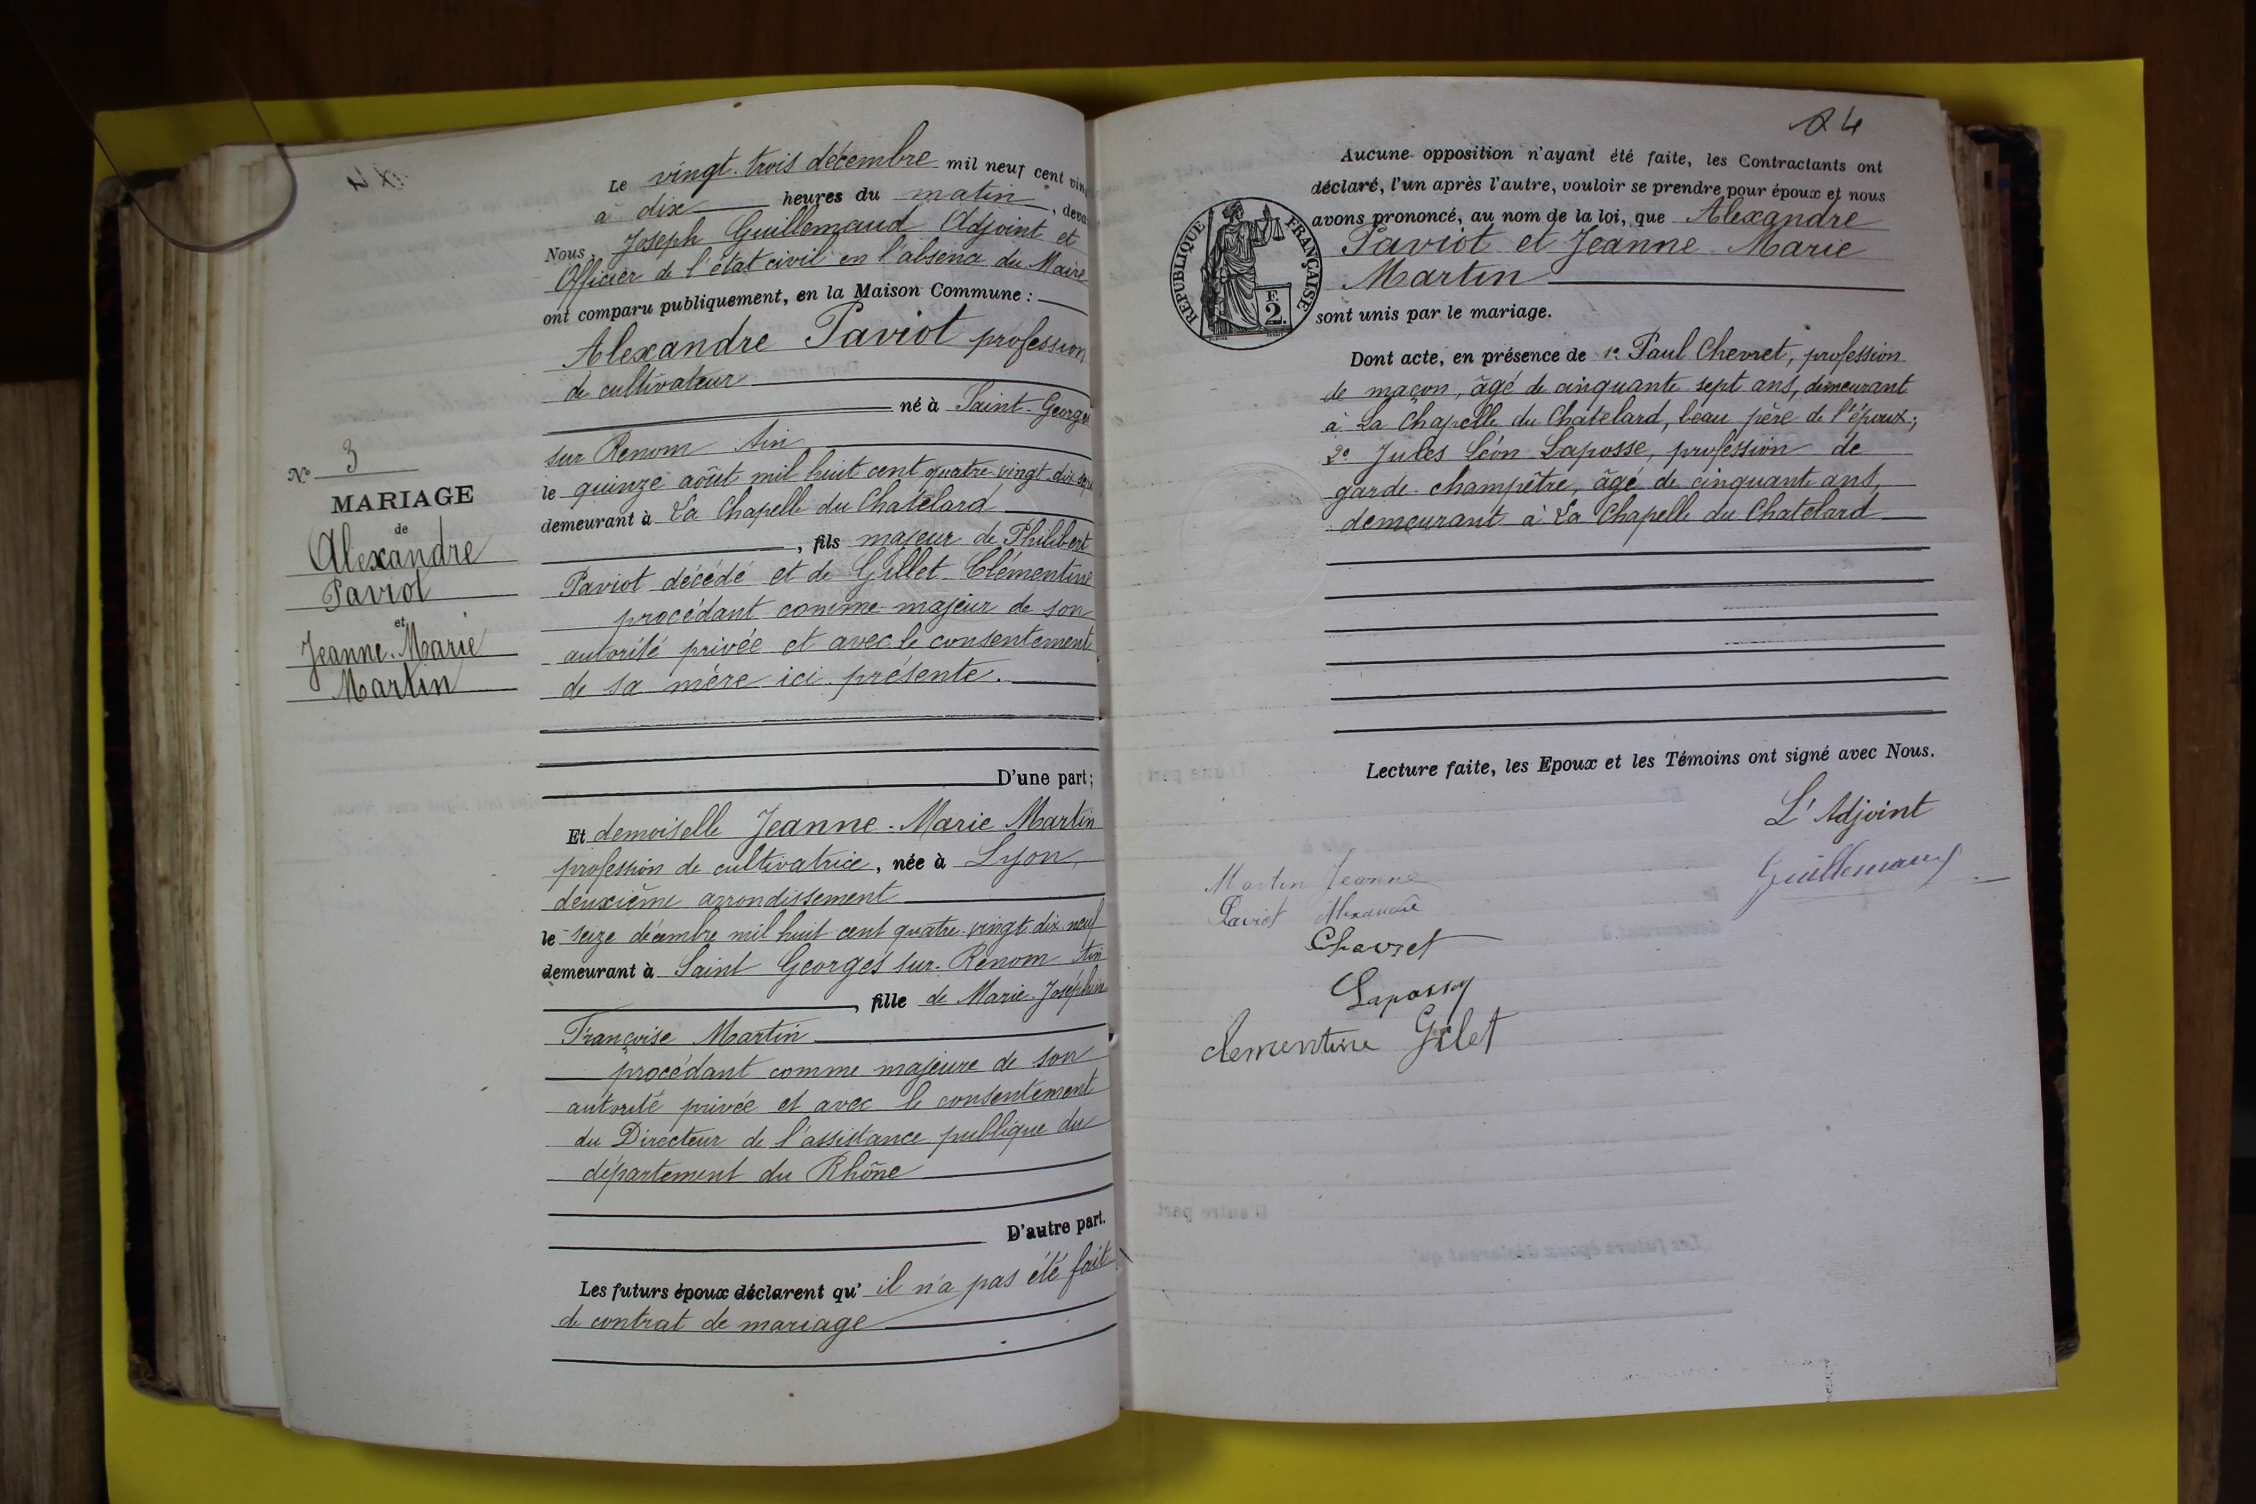 Le vingt-trois décembre mil neuf cent
à dix heures du matin,
Nous, Joseph Guillemaud Adjoint et
Officier de l'état civil en l'absence du Maire
ont comparu publiquement, en la Maison Commune :
Alexandre Paviot profession
de cultivateur
né à Saint-Georges
sur Renom Ain
le quinze août mil huit cent quatre-vingt dix sept
demeurant à La Chapelle du Chatelard
, fils majeur de Philibert
Paviot décédé et de Gillet Clémentine
procédant comme majeur de son
autorité privée et avec le consentement
de sa mère ici présente.
D'une part;
N° 3
MARIAGE
de
Alexandre
Paviot
et
Jeanne-Marie
Martin
Et demoiselle Jeanne-Marie Martin
profession de cultivatrice, née à Lyon,
deuxième arrondissement
le seize décembre mil huit cent quatre-vingt dix neuf
demeurant à Saint Georges sur-Renom Ain
, fille de Marie-Joséphine
Françoise Martin
procédant comme majeure de son
autorité privée et avec le consentement
du Directeur de l'assistance publique du
département du Rhône
D'autre part.
Les futurs époux déclarent qu'il n'a pas été fait
de contrat de mariage
24
Aucune opposition n'ayant été faite, les Contractants ont
déclaré, l'un après l'autre, vouloir se prendre pour époux et nous
avons prononcé, au nom de la loi, que Alexandre
Paviot et Jeanne-Marie
Martin
sont unis par le mariage.
RÉPUBLIQUE FRANÇAISE
F.
2.
Dont acte, en présence de 1° Paul Chevret, profession
de maçon, âgé de cinquante sept ans, demeurant
à La Chapelle du Chatelard, beau père de l'époux;
2° Jules Léon Laposse, profession de
garde-champêtre, âgé de cinquante ans,
demeurant à La Chapelle du Chatelard
Lecture faite, les Epoux et les Témoins ont signé avec Nous.
L'Adjoint
Guillemaud
Martin Jeanne
Paviot Alexandre
Chevret
Laposse
clementine Gilet